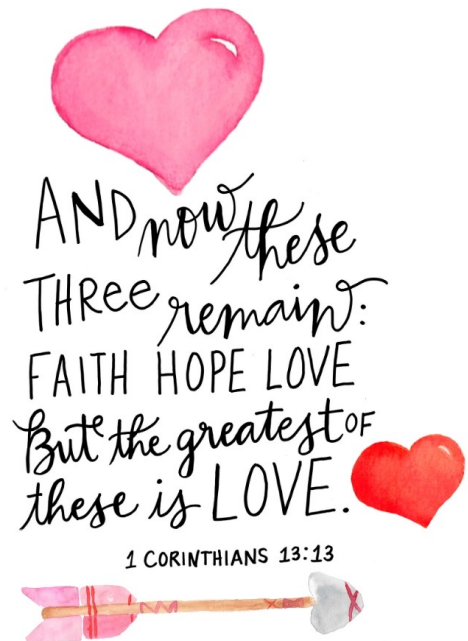 AND now these
THRee remain:
FAITH HOPE LOVE
But the greatest OF
these is LOVE.
1 CORINTHIANS 13:13